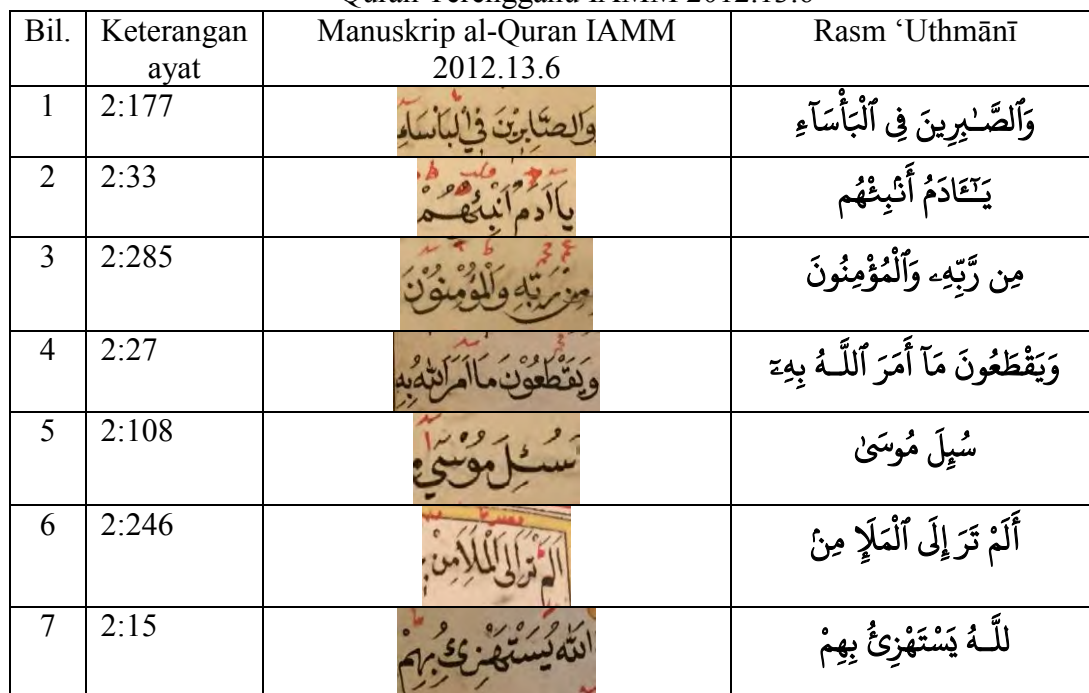 Quran Terengganu IAMM 2012.13.6
Bil. Keterangan ayat Manuskrip al-Quran IAMM 2012.13.6 Rasm ‘Uthmānī
1 2:177 وَالصَّابِرِيْنَ فِي الْبَأْسَاءِ وَٱلصَّـٰبِرِينَ فِى ٱلْبَأْسَآءِ
2 2:33 يَااَدَمُ اَنْبِئْهُمْ يَـٰٓـَٔادَمُ أَنۢبِئْهُم
3 2:285 مِنْ رَبِّهِ وَالْمُؤْمِنُوْنَ مِن رَّبِّهِۦ وَٱلْمُؤْمِنُونَ
4 2:27 وَيَقْطَعُوْنَ مَا اَمَرَ اللهُ بِهِ وَيَقْطَعُونَ مَآ أَمَرَ ٱللَّـهُ بِهِۦٓ
5 2:108 سُئِلَ مُوْسَى سُئِلَ مُوسَىٰ
6 2:246 اَلَمْ تَرَ اِلَى الْمَلَاِ مِنْ أَلَمْ تَرَ إِلَى ٱلْمَلَإِ مِنۢ
7 2:15 اَللهُ يَسْتَهْزِئُ بِهِمْ للَّـهُ يَسْتَهْزِئُ بِهِمْ